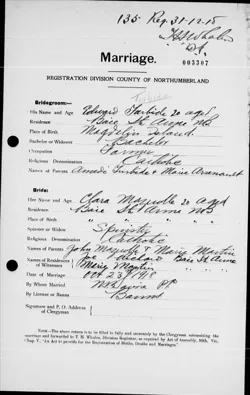 135 Reg. 31-12-18
Marriage.
003307
REGISTRATION DIVISION COUNTY OF NORTHUMBERLAND
Bridegroom:-
His Name and Age Edward Turbide 20 aged
Residence Baie St Anne NB
Place of Birth Magdelin Island
Bachelor or Widower Bachelor
Occupation Farmer
Religious Denomination Catholic
Names of Parents Amede Turbide & Marie Arseneault
Bride:-
Her Name and Age Clara Mazerolle 20 aged
Residence Baie St Anne NB
Place of Birth " " "
Spinster or Widow Spinster
Religious Denomination Catholic
Names of Parents John Mazerolle & Mary Martin
Names of Residences of Witnesses
Baie St Anne
Mary Martin " " "
Date of Marriage Oct 23, 1918
By Whom Married
By License or Banns Banns
Signature and P. O. Address of Clergyman
NOTE—The above return is to be filled in fully and accurately by the Clergyman solemnizing the marriage and forwarded to T. H. Whalen, Division Registrar, as required by Act of Assembly, 50th Vic. Chap. V., "An Act to provide for the Registration of Births, Deaths and Marriages."